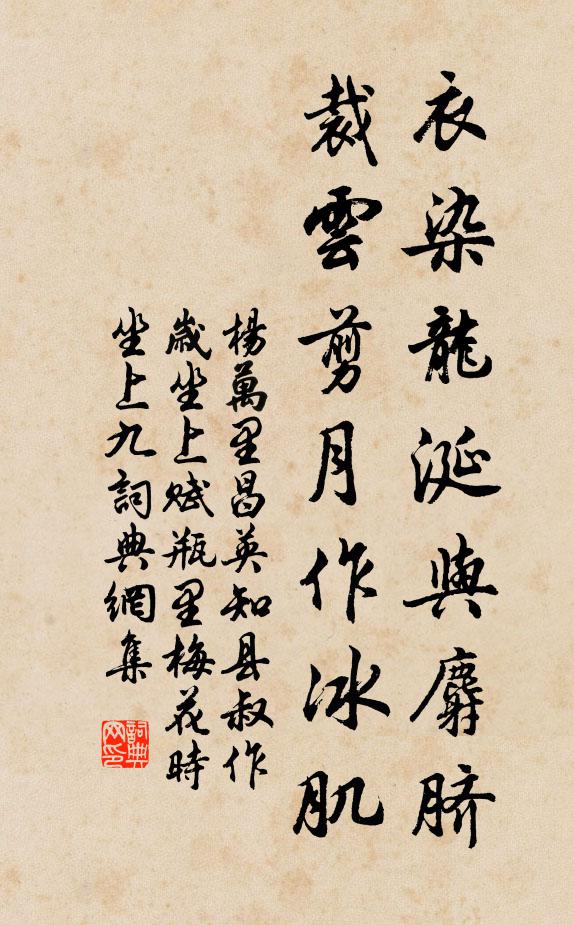 衣染龍涎與麝脐
裁雲剪月作冰肌
楊萬里昌英知县叔作
歲坐上賦瓶里梅花時
坐上九詞典網集
詞典网印